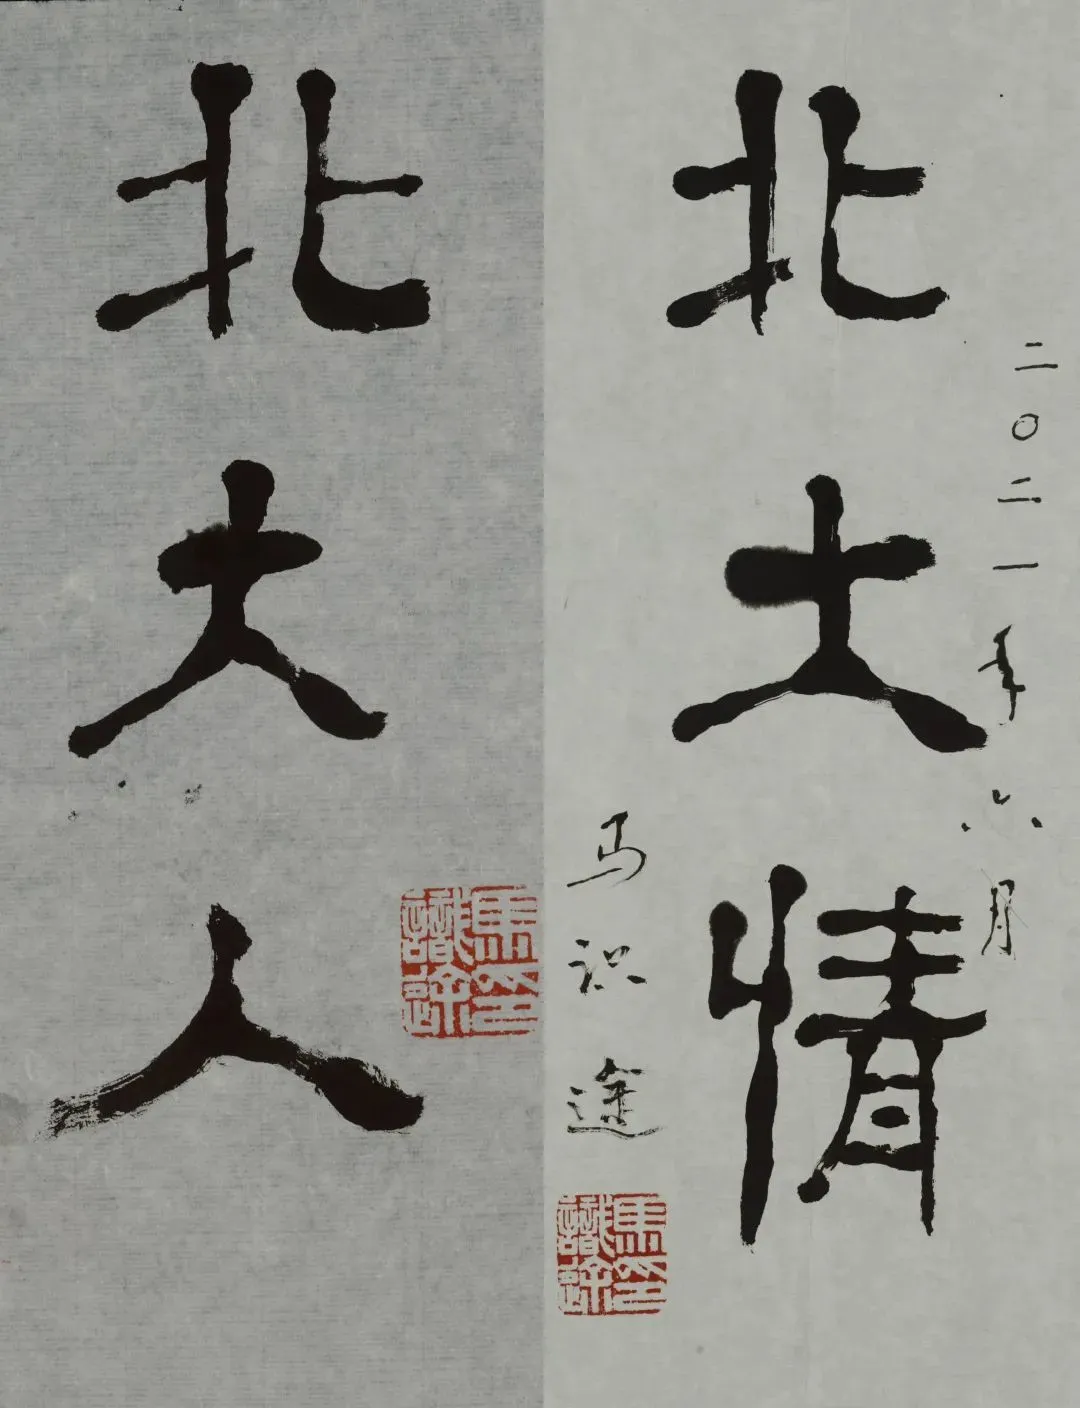 二〇二一年六月
北大情
马识途
馬識途印
北大人
馬識途印